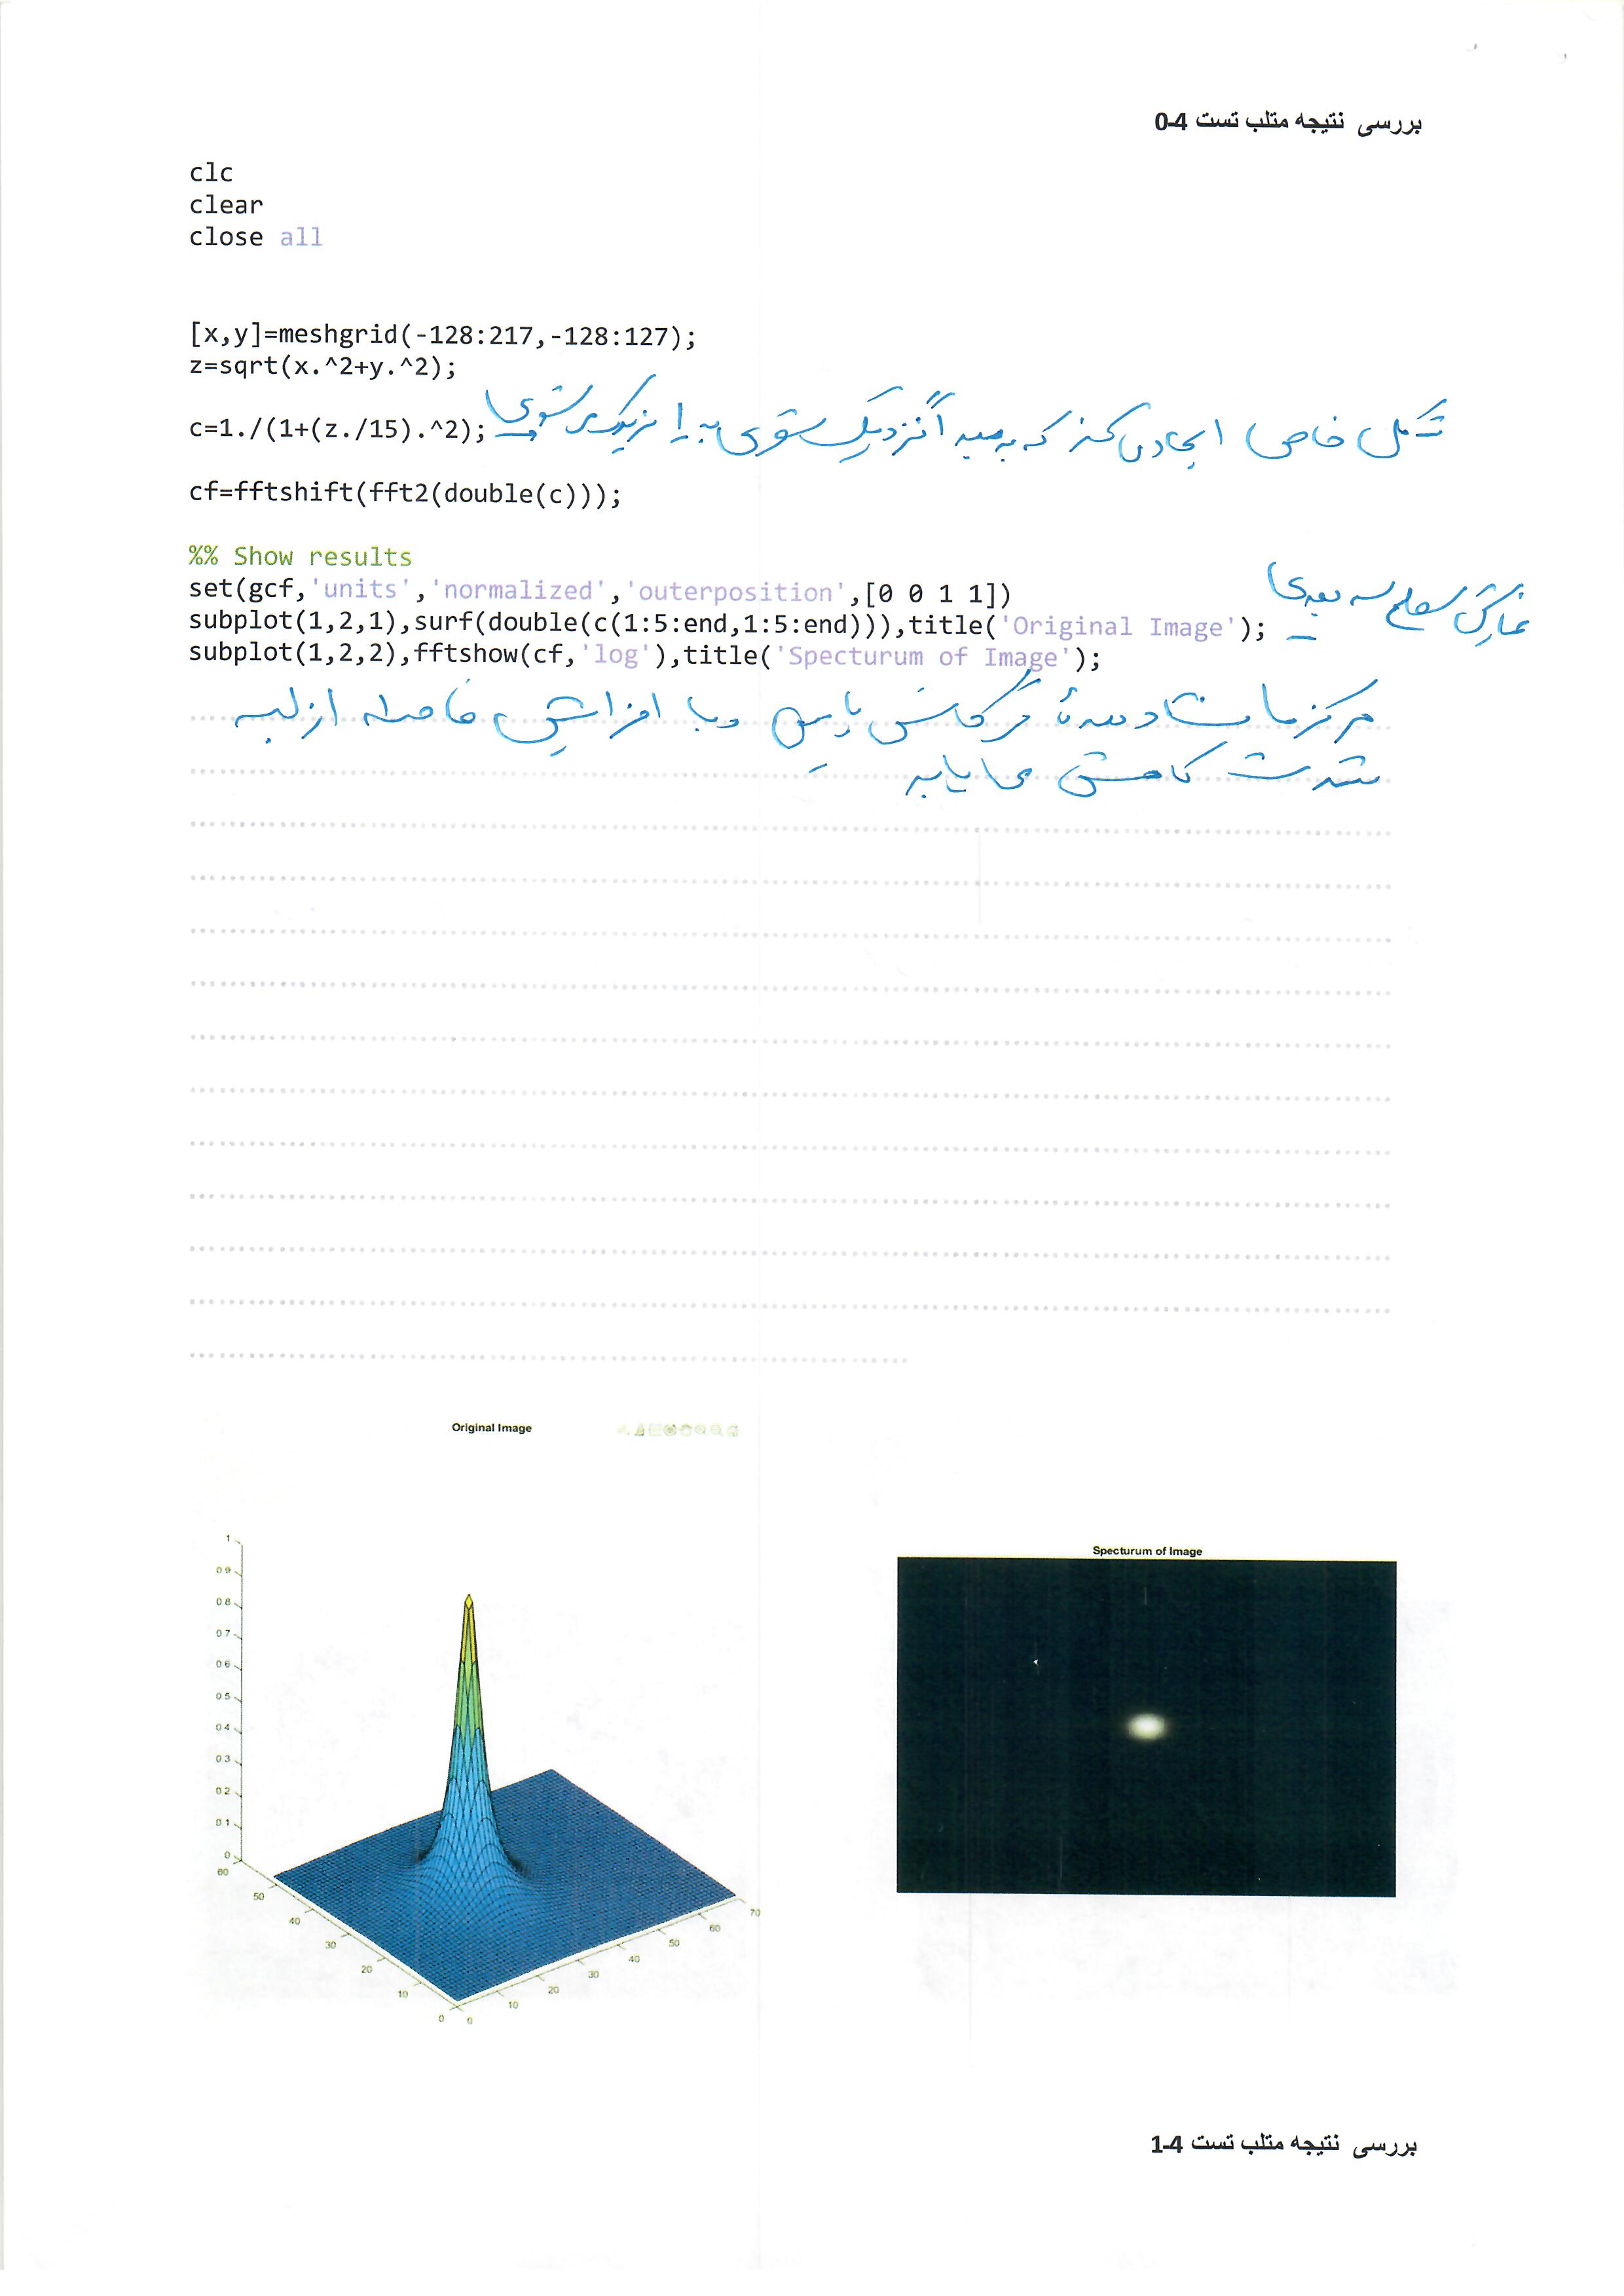 بررسی نتیجه متلب تست 4-0
clc
clear
close all
[x,y]=meshgrid(-128:217,-128:127);
z=sqrt(x.^2+y.^2);
c=1./(1+(z./15).^2); شکل خاص ایجاد می کند که به مبدا نزدیک شوی به 1 نزدیک می شوی
cf=fftshift(fft2(double(c)));
%% Show results
set(gcf,'units','normalized','outerposition',[0 0 1 1])
subplot(1,2,1),surf(double(c(1:5:end,1:5:end))),title('Original Image'); نمایش سطح سه بعدی
subplot(1,2,2),fftshow(cf,'log'),title('Specturum of Image');
مرکز ما نشان دهندهٔ فرکانس پایین و با افزایش فاصله از لبه
شدت کاهش می یابد
Original Image
1
0.9
0.8
0.7
0.6
0.5
0.4
0.3
0.2
0.1
0
60
50
40
30
20
10
0
0
10
20
30
40
50
60
70
Specturum of Image
بررسی نتیجه متلب تست 4-1